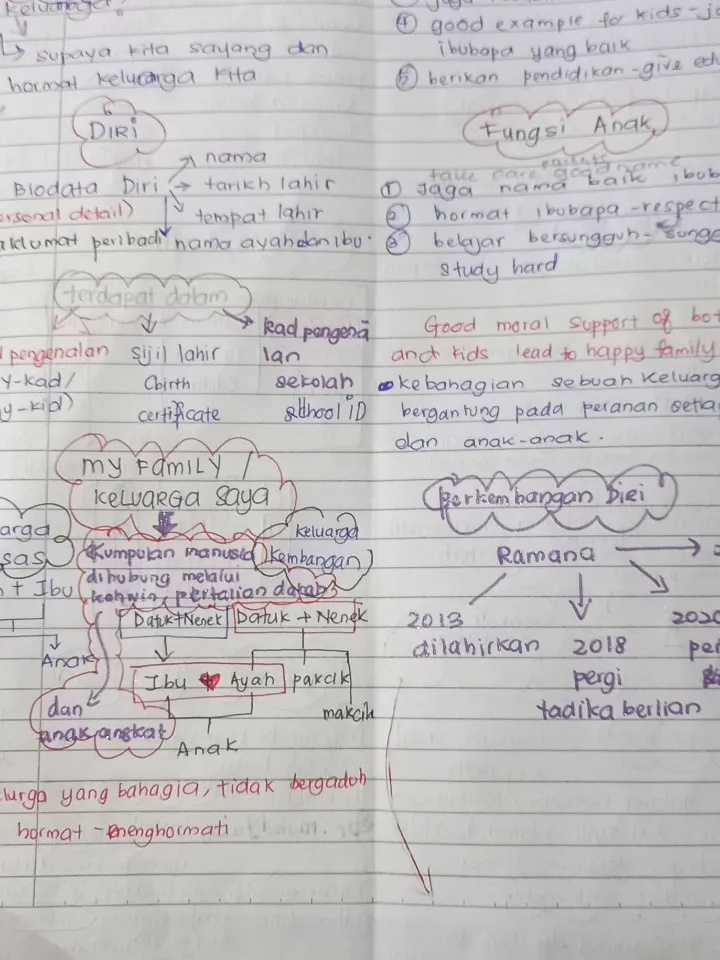 keluarga.
supaya kita sayang dan
hormat keluarga kita
DIRI
nama
Biodata Diri → tarikh lahir
ersonal detail)
tempat lahir
aklumat peribadi nama ayah dan ibu.
terdapat dalam
pengenalan
y-kad/
y-kid)
sijil lahir
(birth
certificate
kad pengena
lan
sekolah
school iD
my FAMILY /
KELUARGA SAYA
arga
sas
+ Ibu
Anak
Kumpulan manusia
dihubung melalui
kahwin, pertalian darah
keluarga
kembangan
Datuk+Nenek
Datuk + Nenek
Ibu Ayah pakcik
makcik
dan
anak angkat
Anak
lurga yang bahagia, tidak bergaduh
hormat-menghormati
④ good example for kids-j
ibubapa yang baik
⑤ berikan pendidikan-give edu
Fungsi Anak
take care good name
① Jaga nama baik ibub
② hormat ibubapa-respect
③ belajar bersungguh-sungg
study hard
Good moral support of bot
and kids lead to happy family
kebahagian sebuah keluarg
bergantung pada peranan setia
dan anak-anak.
Perkembangan Diri
Ramana
2013
dilahirkan
2018
pergi
tadika berlian
2020
per